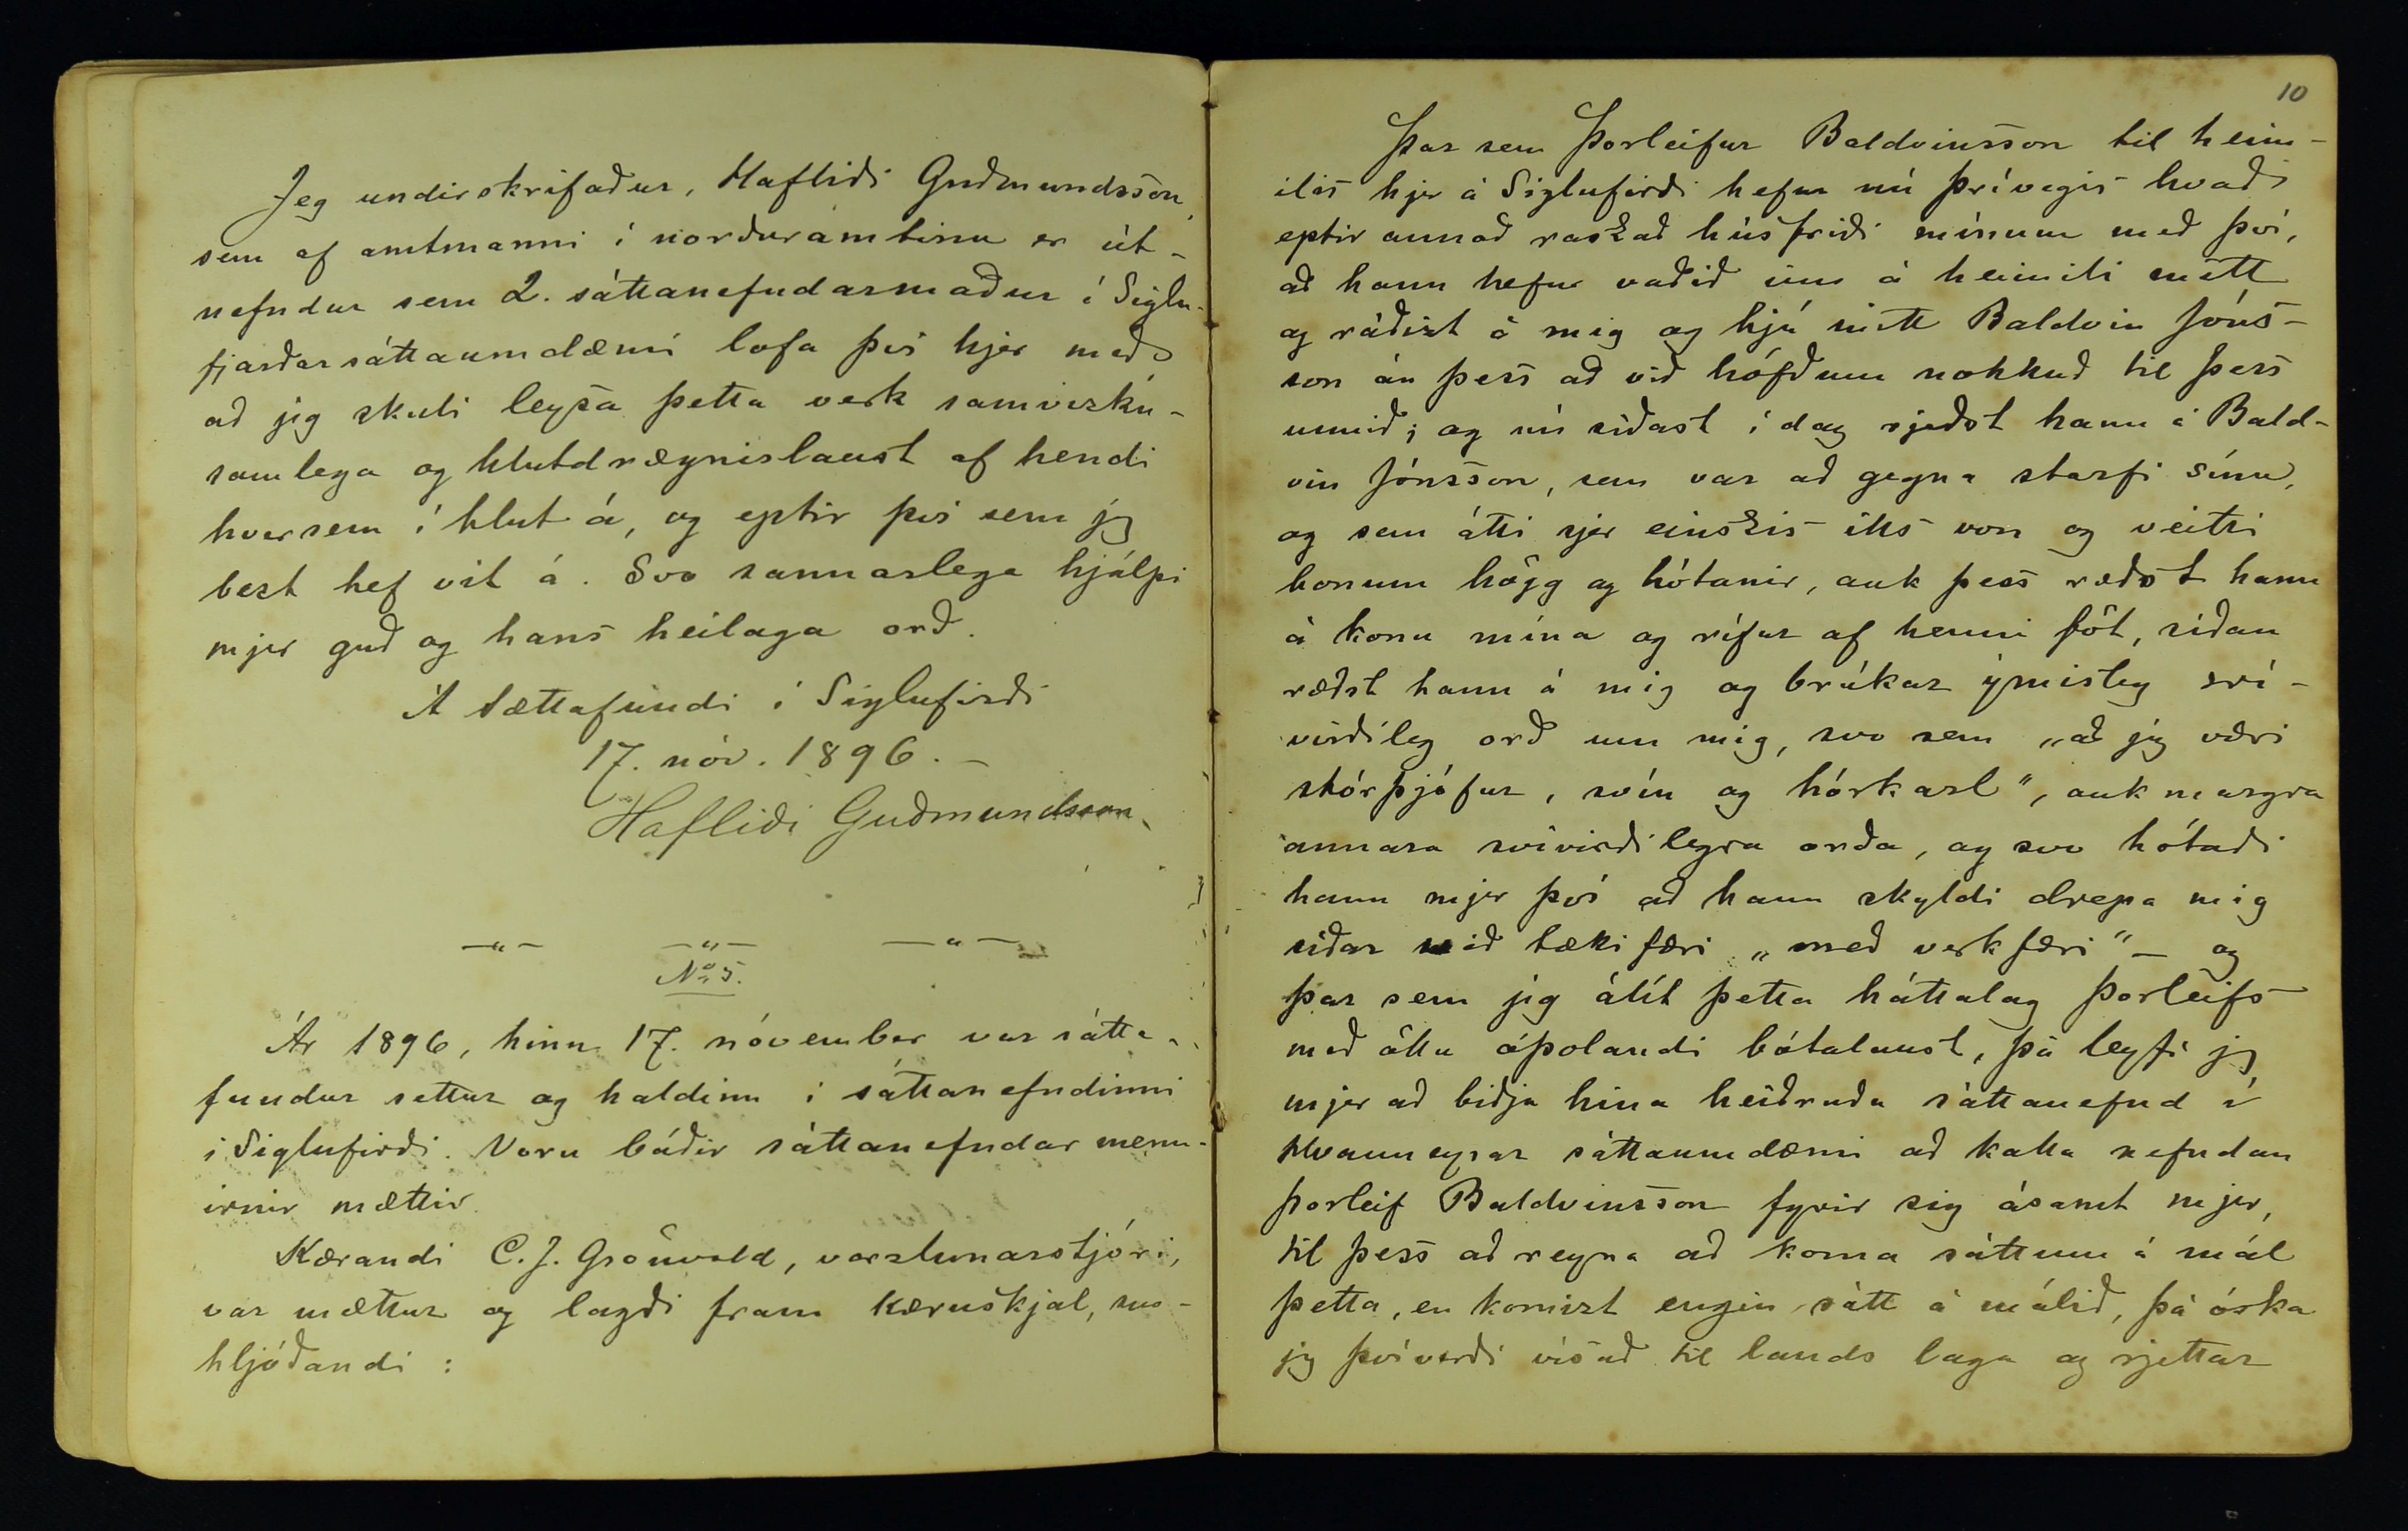 Jeg undirskrifaður, Hafliði Guðmundsson,
sem af amtmanni í norðuramtinu er út-
nefndur sem 2. sáttanefndarmaður í Siglu-
fjarðarsáttaumdæmi lofa því hjer með
að jeg skuli leysa þetta verk samvizku-
samlega og hlutdrægnislaust af hendi
hver sem í hlut á, og eptir því sem jeg
bezt hef vit á. Svo sannarlega hjálpi
mjer guð og hans heilaga orð.
Á sættafundi í Siglufirði
17. nóv. 1896.–
Hafliði Guðmundsson.
—"— —"— —"—
No 5.
Ár 1896, hinn 17. nóvember var sátta-
fundur settur og haldinn í sáttanefndinni
í Siglufirði. Voru báðir sáttanefndar menn-
irnir mættir.
Kærandi C. J. Grönvold, verzlunarstjóri,
var mættur og lagði fram kæruskjal, svo-
hljóðandi:
10
Þar sem Þorleifur Baldvinsson til heim-
ilis hjer á Siglufirði hefur nú þrívegis hvað
eptir annað raskað húsfriði mínum með því,
að hann hefur vaðið inn á heimili mitt
og ráðizt á mig og hjú mitt Baldvin Jóns-
son án þess að við höfðum nokkuð til þess
unnið; og nú síðast í dag rjeðst hann á Bald-
vin Jónsson, sem var að gegna starfi sínu,
og sem átti sjer einskis ills von og veitti
honum högg og hótanir, auk þess ræðst hann
á konu mína og rífur af henni föt, síðan
ræðst hann á mig og brúkar ýmisleg sví-
virðileg orð um mig, svo sem „að jeg væri
stórþjófur, svín og hórkarl", auk margra
annara svívirðilegra orða, og svo hótaði
hann mjer því að hann skyldi drepa mig
síðar við tækifæri „með verkfæri" – og
þar sem jeg álít þetta háttalag Þorleifs
með öllu óþolandi bótalaust, þá leyfi jeg
mjer að biðja hina heiðruðu sáttanefnd í
Hvanneyrar sáttaumdæmi að kalla nefndan
Þorleif Baldvinsson fyrir sig ásamt mjer,
til þess að reyna að koma sáttum á mál
þetta, en komizt engin sátt á málið, þá óska
jeg því verði vísað til lands laga og rjettar